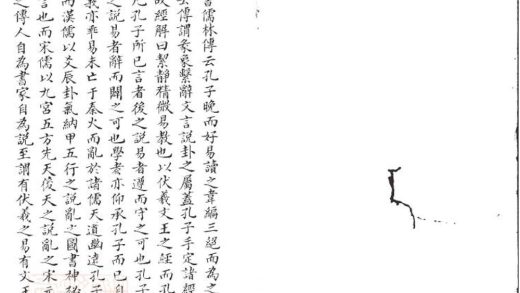 書儒林傳云孔子晚而好易讀之韋編三絕而為之
傳謂彖象繫辭文言說卦之屬蓋孔子手定諸經
故經解曰絜靜精微易教也以伏羲文王之經而孔
凡孔子所已言者後之說易者遵而守之可也孔子
之說易者辭而闢之可也學者亦仰承孔子而已自
教亦乖易未亡于秦火而亂於諸儒天道幽遠孔子
而漢儒以爻辰卦氣納甲五行之說亂之圖書神秘
言也而宋儒以九宮五方先天後天之說亂之宋元
之傳人自為書家自為說至謂有伏羲之易有文王